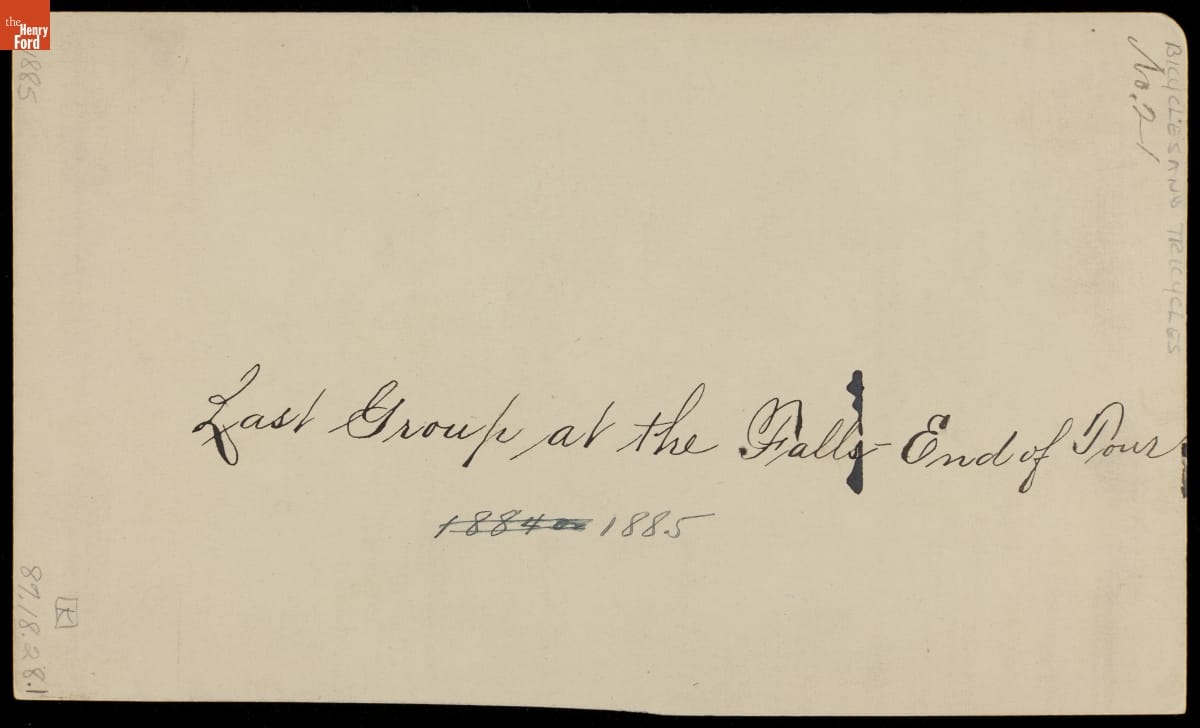 the
Henry
Ford
1885
BICYCLES AND TRICYCLES
No. 21
Last Group at the Falls - End of Tour
1884 or 1885
K
89.18.28.1